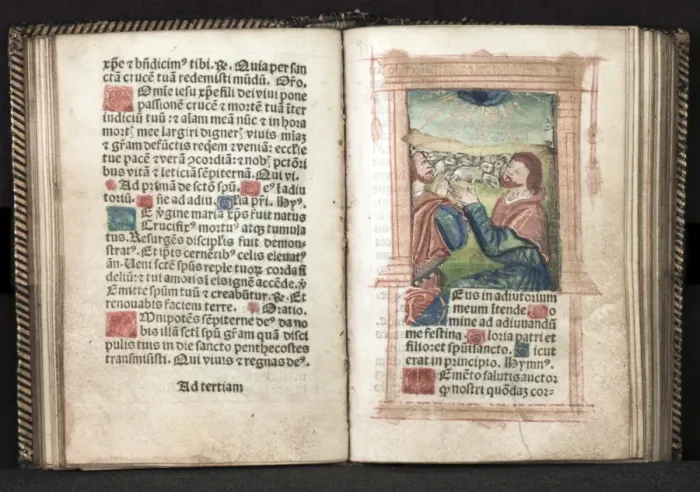 xp̄e ⁊ bñdicimꝰ tibi. ℟. Quia per san
ctā crucē tuā redemisti mūdū. Oŕo.
Omīe iesu xp̄e fili dei viui pone
passionē crucē ⁊ mortē tuā īter
iudiciū tuū: ⁊ aīam meā nūc ⁊ in hora
mortꝭ mee largiri dignerꝭ viuis miāꝫ
⁊ grām defūctis reqēm ⁊ veniā: eccłie
tue pacē ⁊ verā ꝯcordiā: ⁊ nobꝭ pctōri
bus vitā ⁊ leticiā sēpiternā. Qui vi.
Ad prīmā de sctō spū. Deꝰ ī adiu
toriū. Dñe ad adiu. Glīa pr̄i. Hyꝰ.
DE v̄gine maria xp̄s fuit natus
Crucifixꝰ mortuꝰ atqꝫ tumula
tus. Resurgēs disciplīs fuit demon
stratꝰ. Et ip̄is cernētibꝰ celis eleuatꝰ
añ. Ueni scte sp̄us reple tuoꝝ corda fi
deliū: ⁊ tui amorꝭ ī eis ignē accēde. ꝟ
Emitte sp̄um tuū ⁊ creabūtur. ℟. Et
renouabis faciem terre. Oratio.
OMnipotēs sēpiterne deꝰ da no
bis illā scti sp̄ū grām quā disci
pulis tuis in die sancto penthecostes
transmisisti. Qui viuis ⁊ regnas deꝰ.
Ad tertiam
Eus in adiutorium
meum ītende. Do
mine ad adiuuandū
me festina. Gloria patri et
filio: et sp̄ui sancto. Sicut
erat in principio. Hymnꝰ.
MEmēto salutis auctor
ꝙ nostri quōdaꝫ cor-